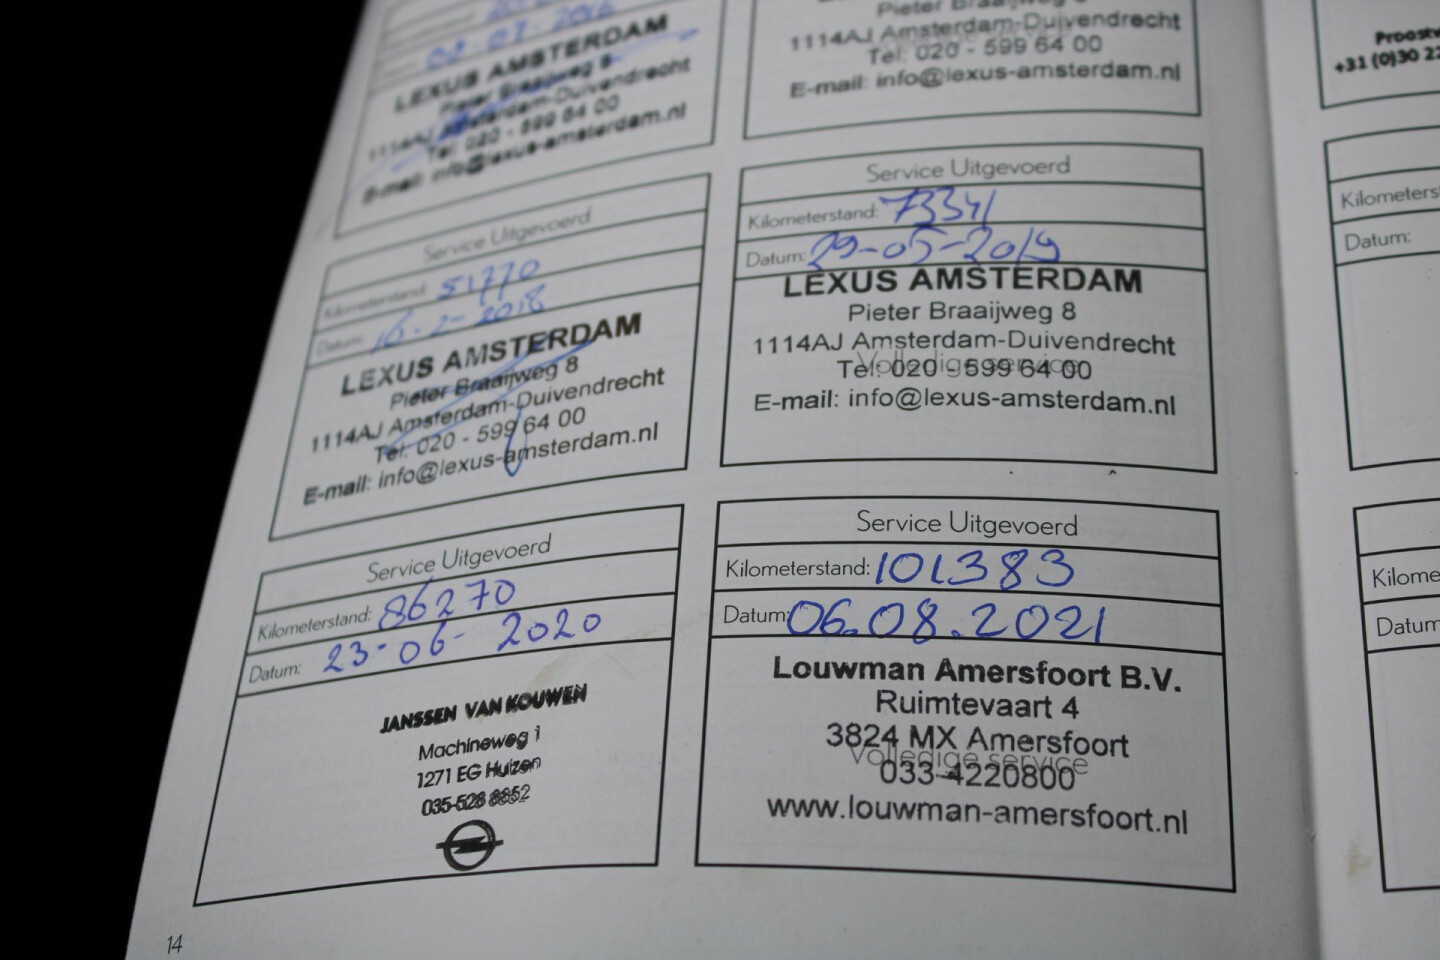 LEXUS AMSTERDAM
Pieter Braaijweg 8
1114AJ Amsterdam-Duivendrecht
Tel: 020 - 599 64 00
E-mail: info@lexus-amsterdam.nl
Pieter Braaijweg 8
1114AJ Amsterdam-Duivendrecht
Tel: 020 - 599 64 00
E-mail: info@lexus-amsterdam.nl
+31 (0)30 22
Service Uitgevoerd
Kilometerstand: 51770
Datum: 16-2-2018
LEXUS AMSTERDAM
Pieter Braaijweg 8
1114AJ Amsterdam-Duivendrecht
Tel: 020 - 599 64 00
E-mail: info@lexus-amsterdam.nl
Service Uitgevoerd
Kilometerstand: 73341
Datum: 29-05-2019
LEXUS AMSTERDAM
Pieter Braaijweg 8
1114AJ Amsterdam-Duivendrecht
Volledige service
Tel: 020 - 599 64 00
E-mail: info@lexus-amsterdam.nl
Kilometerst
Datum:
Service Uitgevoerd
Kilometerstand: 86270
Datum: 23-06-2020
JANSSEN VAN KOUWEN
Machineweg 1
1271 EG Huizen
035-528 8852
Service Uitgevoerd
Kilometerstand: 101.383
Datum: 06.08.2021
Louwman Amersfoort B.V.
Ruimtevaart 4
3824 MX Amersfoort
Volledige service
033-4220800
www.louwman-amersfoort.nl
Kilome
Datum
14